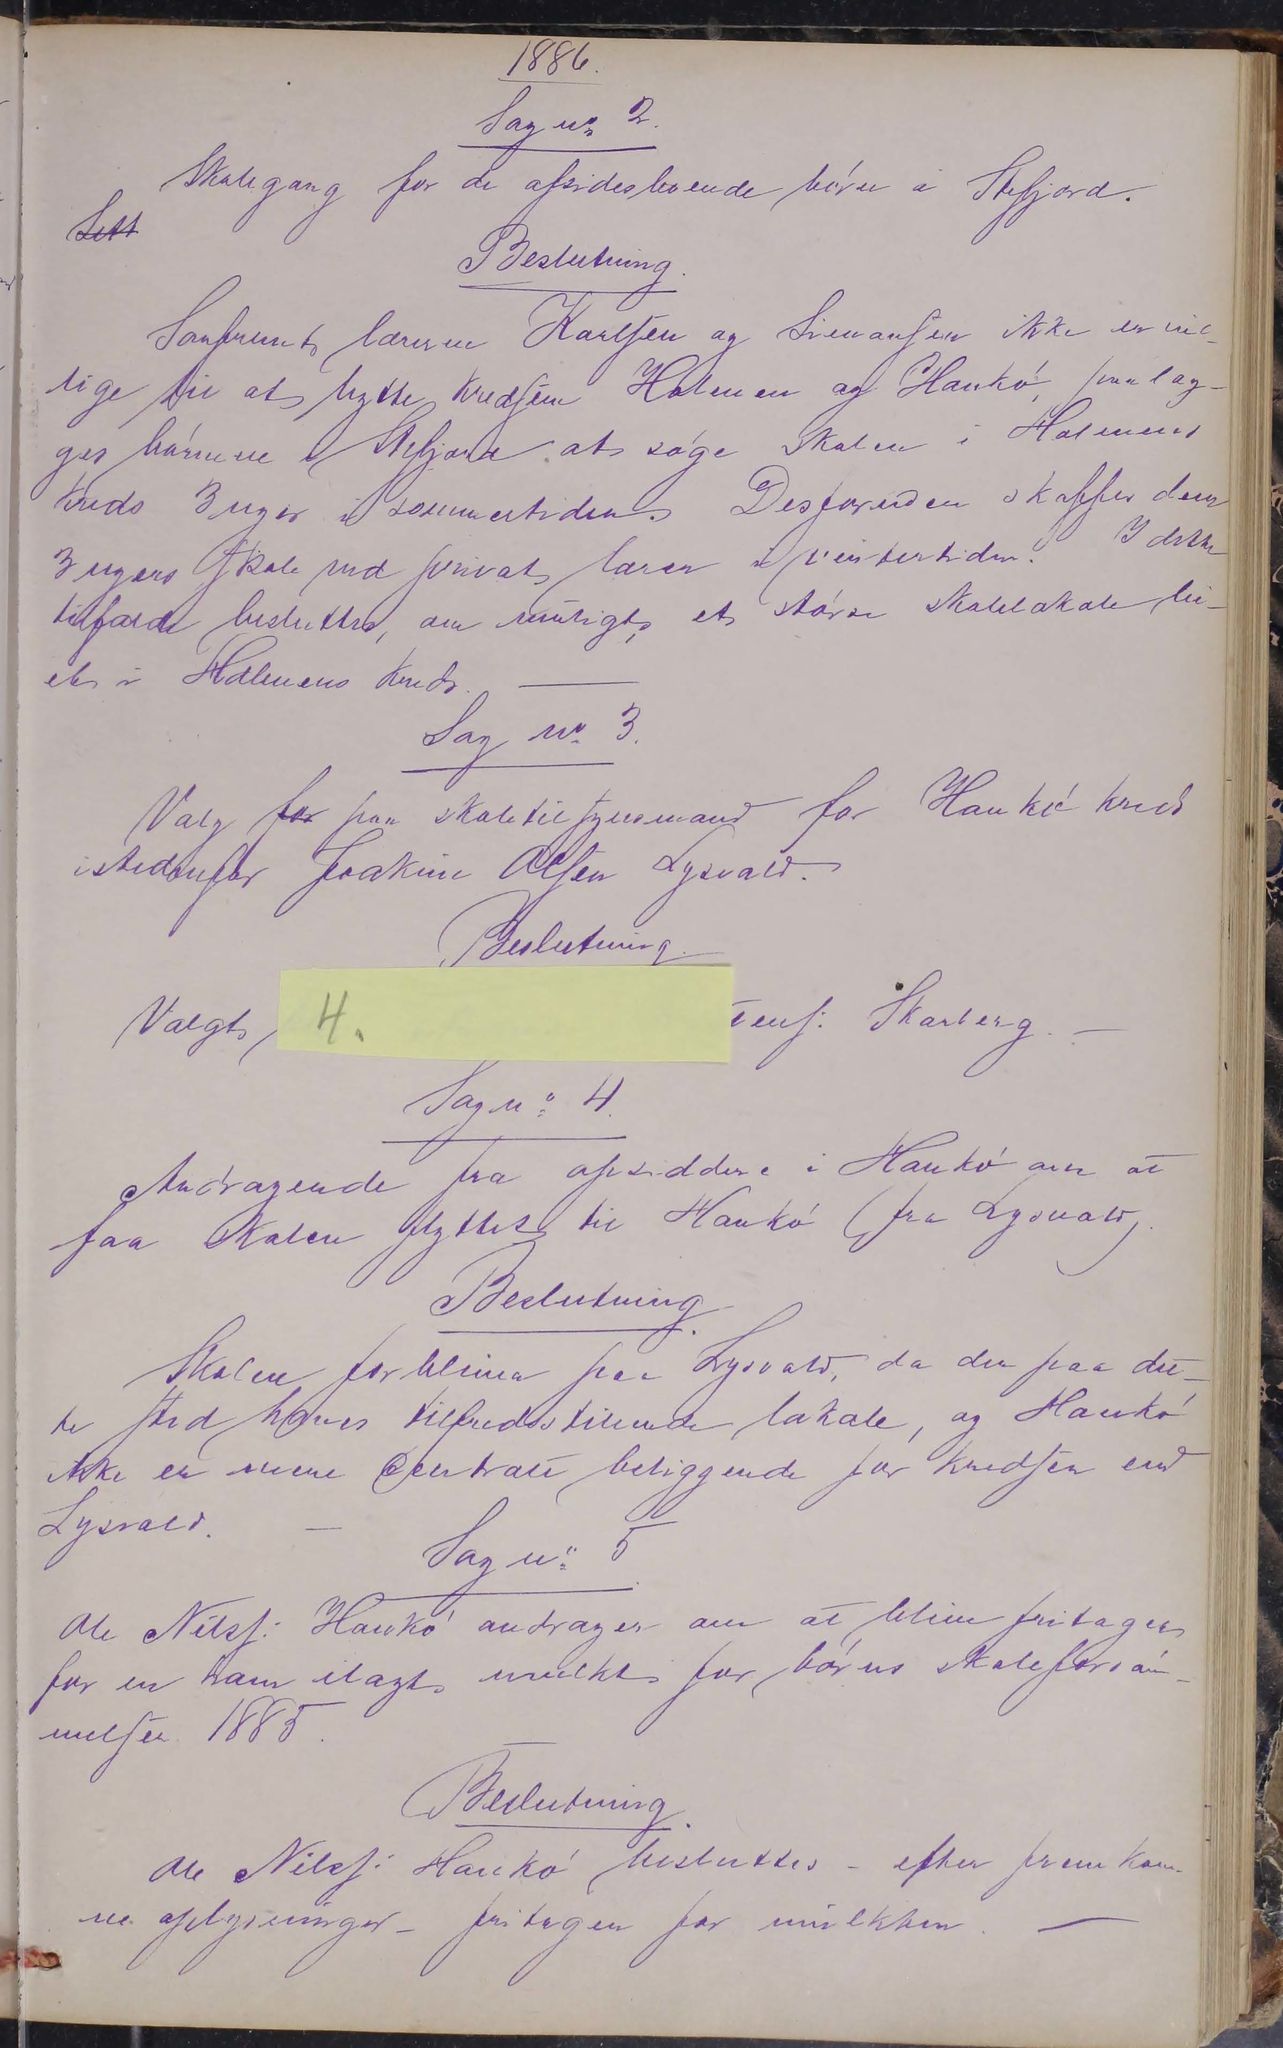 1886.
Sag no 2.
Skolegang for de afsidesboende börn i Stefjord.
Sett
Beslutning.
Saafremt lærerne Karlsen og Simonsen ikke er vil-
lige til at bytte kredsene Holmen og Hankö, paalæg-
ges börnene i Stefjord at söge skolen i Holmens
kreds 3 uger i sommertiden. Desforuden skaffes dem
3 ugers skole ved privat lærer i vintertiden. I dette
tilfælde besluttes, om muligt, et större skolelokale lei-
et i Holmens kreds.
Sag no 3.
Valg for paa skoletilsynsmand for Hankö kreds
istedenfor Joakim Olsen Lysvold.
Beslutning.
Valgt, 4. tens: Skarberg. —
Sag no 4.
Andragende fra opsiddere i Hankö om at
faa skolen flyttet til Hankö (fra Lysvold).
Beslutning.
Skolen forbliver paa Lysvold, da der paa det-
te sted haves tilfredsstilende lokale, og Hankö
ikke er mere centralt beliggende for kredsen end
Lysvold. —
Sag no 5.
Ole Nils: Hankö andrager om at blive fritagen
for en ham ilagt mulkt for börns skoleforsöm-
melser 1885.
Beslutning.
Ole Nils: Hankö besluttes - efter fremkom-
ne oplysninger - fritagen for mulkten. —